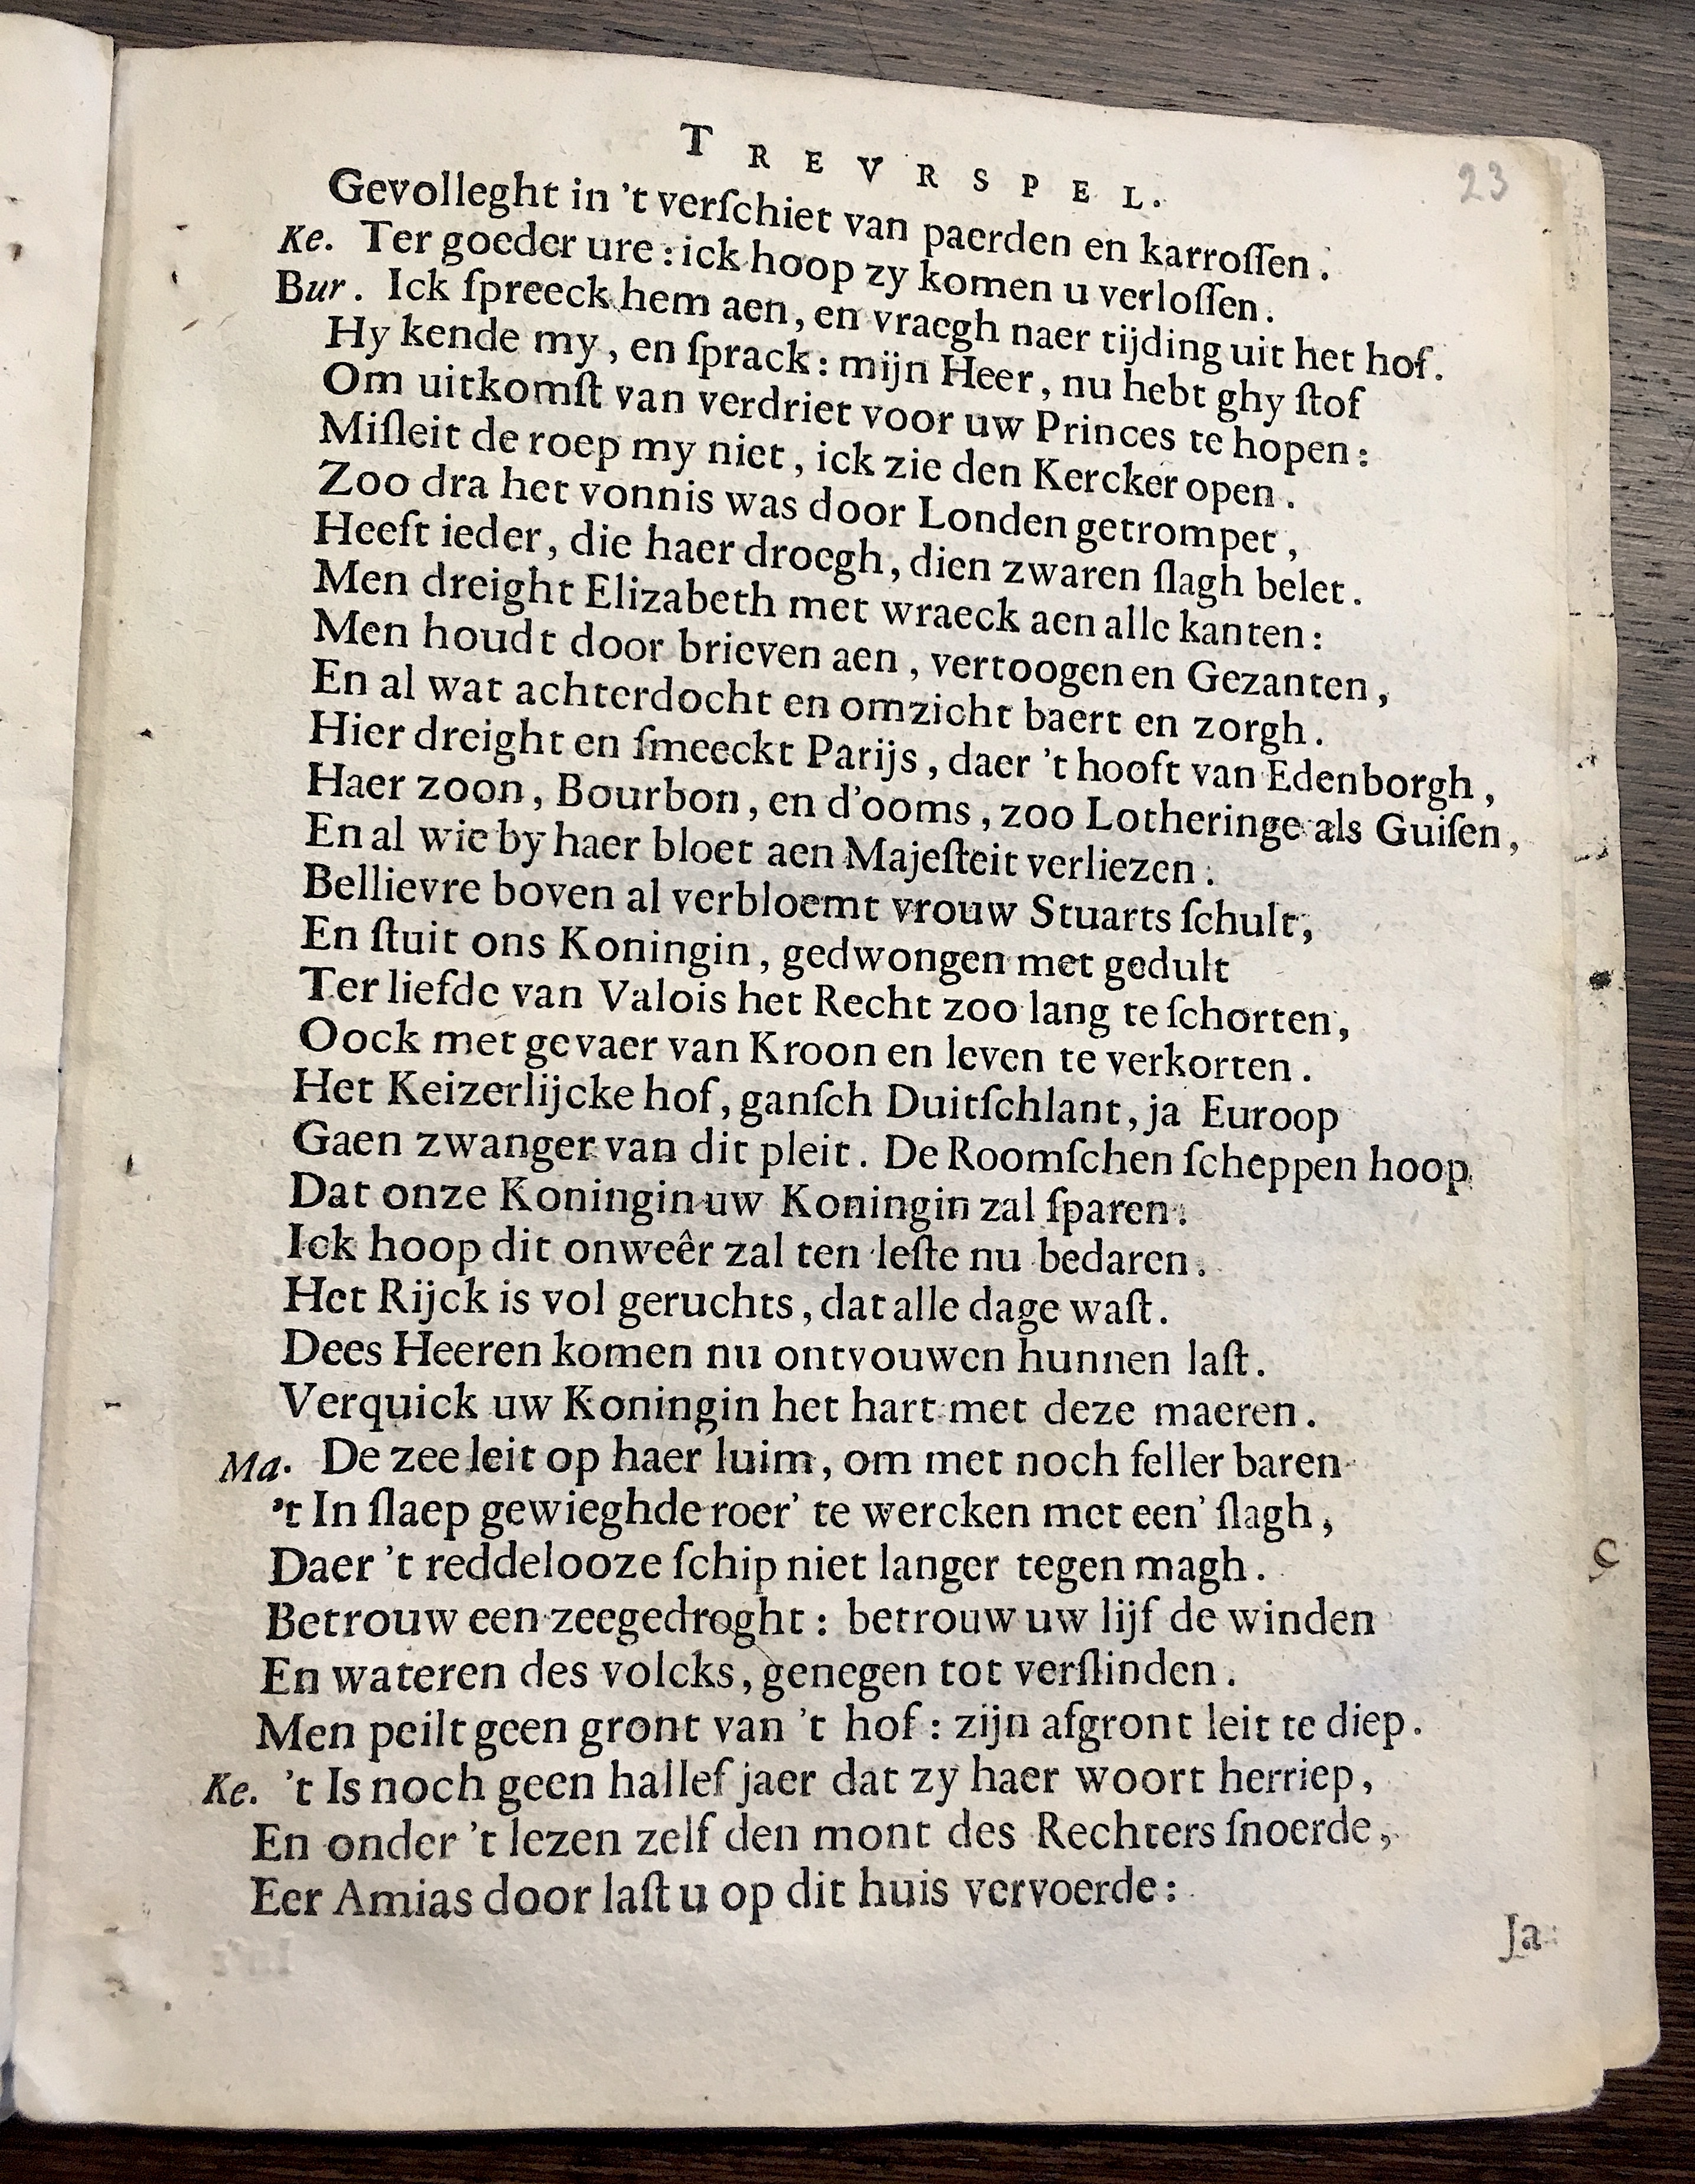 TREVRSPEL.
23
Gevolleght in 't verſchiet van paerden en karroſſen.
Ke. Ter goeder ure: ick hoop zy komen u verloſſen.
Bur. Ick ſpreeck hem aen, en vraegh naer tijding uit het hof.
Hy kende my, en ſprack: mijn Heer, nu hebt ghy ſtof
Om uitkomſt van verdriet voor uw Princes te hopen:
Miſleit de roep my niet, ick zie den Kercker open.
Zoo dra het vonnis was door Londen getrompet,
Heeft ieder, die haer droegh, dien zwaren ſlagh belet.
Men dreight Elizabeth met wraeck aen alle kanten:
Men houdt door brieven aen, vertoogen en Gezanten,
En al wat achterdocht en omzicht baert en zorgh.
Hier dreight en ſmeeckt Parijs, daer 't hooft van Edenborgh,
Haer zoon, Bourbon, en d'ooms, zoo Lotheringe als Guiſen,
En al wie by haer bloet aen Majeſteit verliezen.
Bellievre boven al verbloemt vrouw Stuarts ſchult,
En ſtuit ons Koningin, gedwongen met gedult
Ter liefde van Valois het Recht zoo lang te ſchorten,
Oock met gevaer van Kroon en leven te verkorten.
Het Keizerlijcke hof, ganſch Duitſchlant, ja Euroop
Gaen zwanger van dit pleit. De Roomſchen ſcheppen hoop
Dat onze Koningin uw Koningin zal ſparen.
Ick hoop dit onweêr zal ten leſte nu bedaren.
Het Rijck is vol geruchts, dat alle dage waſt.
Dees Heeren komen nu ontvouwen hunnen laſt.
Verquick uw Koningin het hart met deze maeren.
Ma. De zee leit op haer luim, om met noch feller baren
't In ſlaep gewieghde roer' te wercken met een' ſlagh,
Daer 't reddelooze ſchip niet langer tegen magh.
Betrouw een zeegedroght: betrouw uw lijf de winden
En wateren des volcks, genegen tot verſlinden.
Men peilt geen gront van 't hof: zijn afgront leit te diep.
Ke. 't Is noch geen hallef jaer dat zy haer woort herriep,
En onder 't lezen zelf den mont des Rechters ſnoerde,
Eer Amias door laſt u op dit huis vervoerde:
Ja